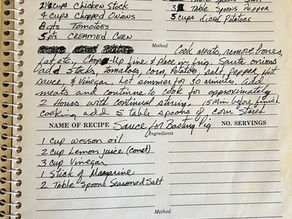 2 1/2 cups Chicken Stock
4 cups chopped Onions
8pts Tomatoes
5pts creamed Corn
3 Table Spoons Pepper
5 cups diced Potatoes
Method
Cook meats, remove bones,
fat, etc., Chop up fine & place in frig. Saute onions
add Stocks, tomatoes, corn, Potatoes, salt, pepper, Hot
sauce, & Vinegar. Let simmer for 30 minutes. Add
meats and continue to cook for approximately
2 Hours with continual stirring. 15 min before finish
cooking add 5 table spoons of corn Starch
NAME OF RECIPE Sauce for Basting Pig NO. SERVINGS
Ingredients
1 cup wesson oil
2 cup Lemon juice (conct)
3 cup Vinegar
1 Stick of Margarine
2 Table Spoons Seasoned Salt
Method